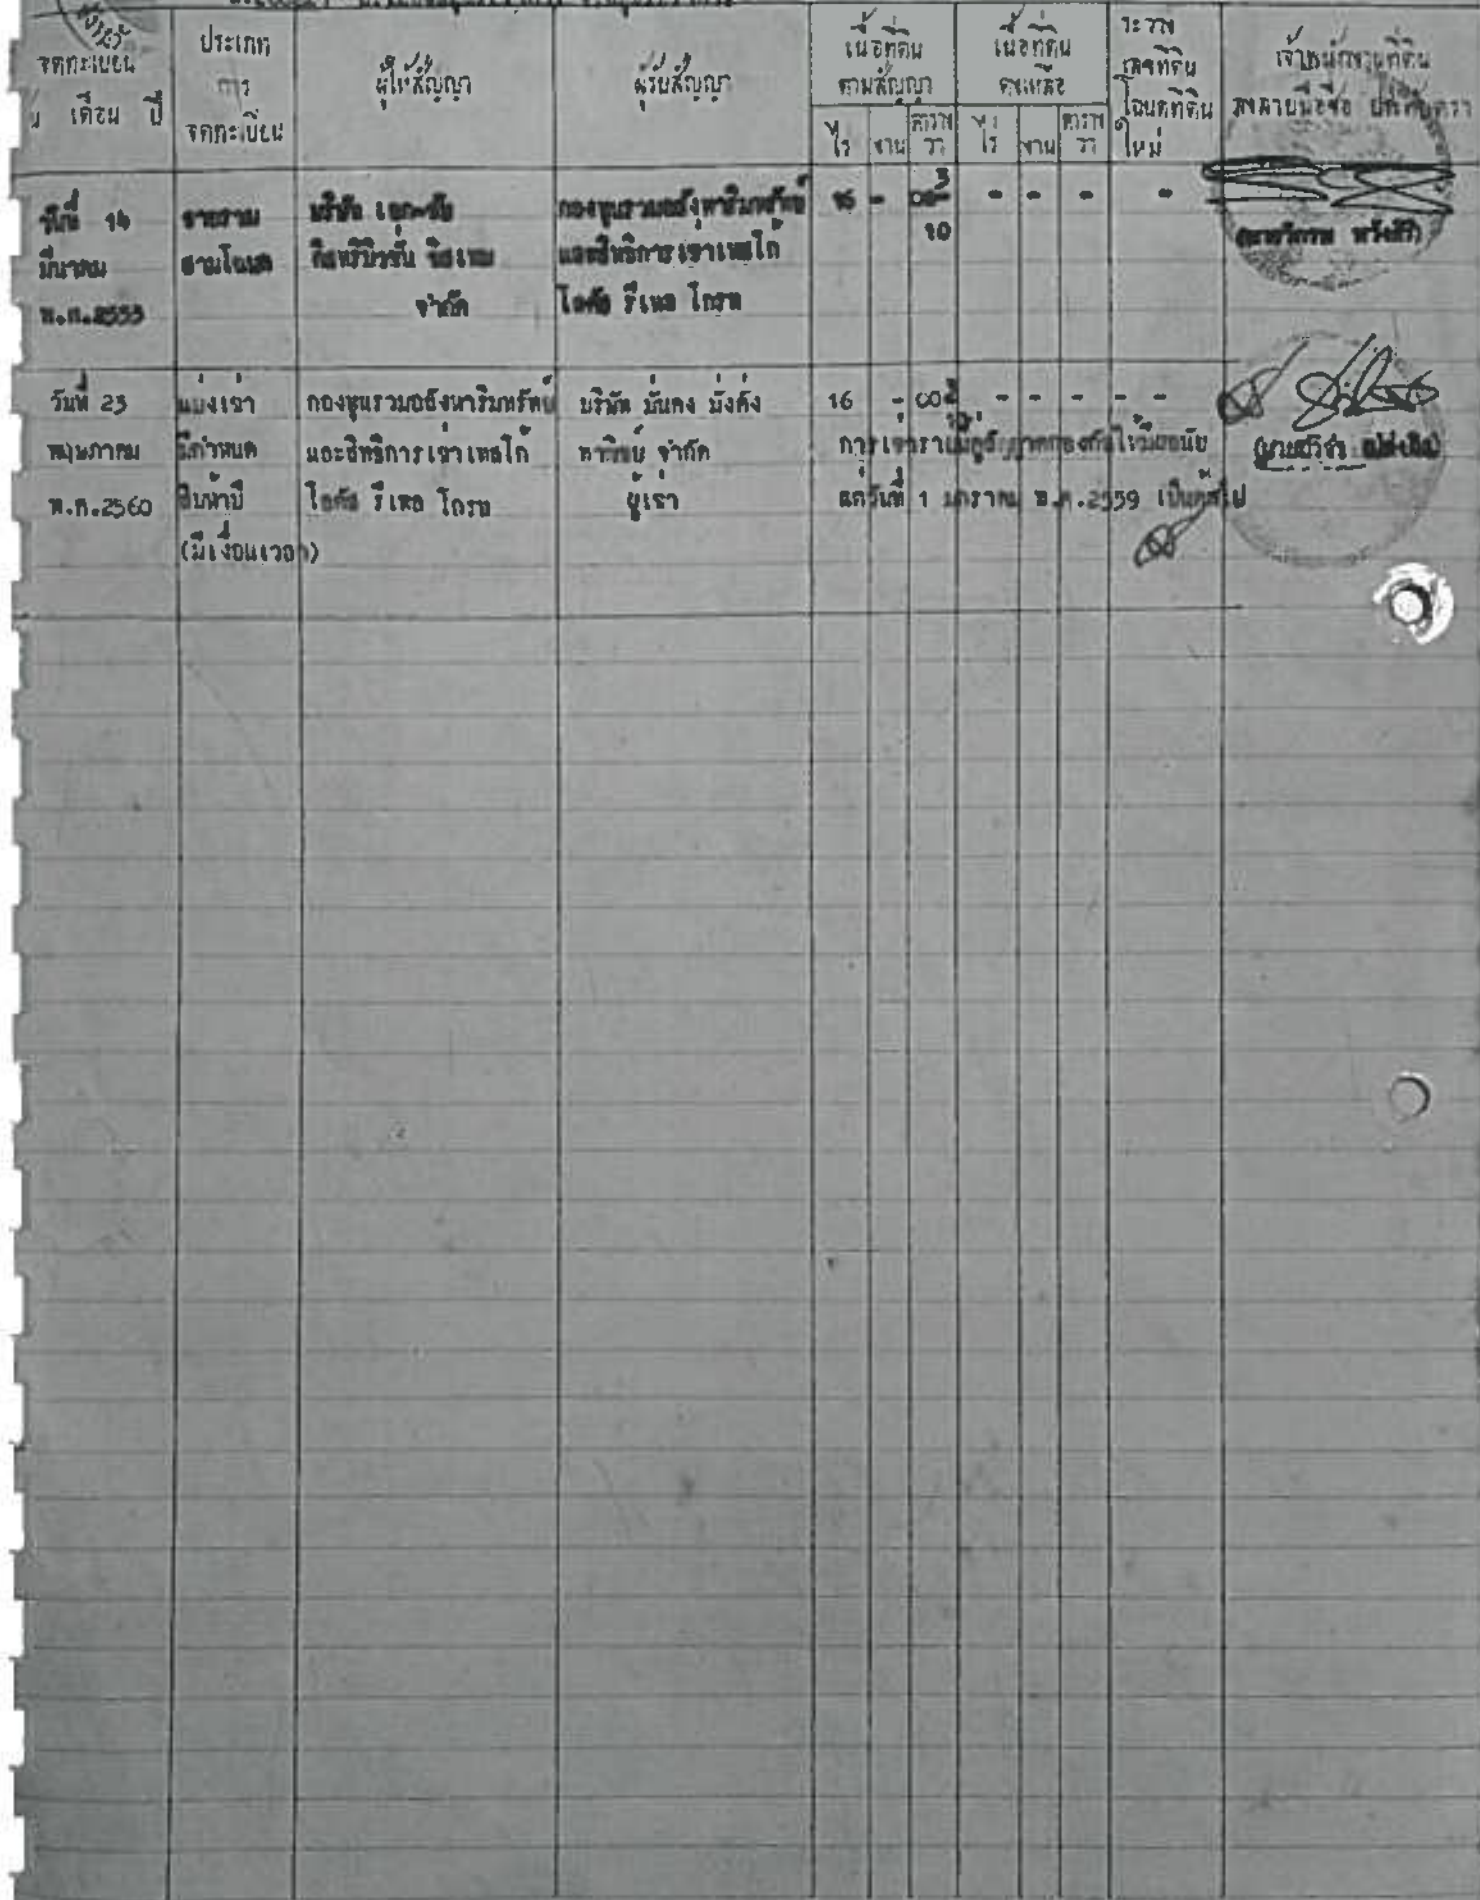 จดทะเบียน
เดือน ปี
ประเภท
การ
จดทะเบียน
ผู้ให้สัญญา
ผู้รับสัญญา
เนื้อที่ดิน
ตามสัญญา
ไร่ งาน ตาราง
วา
เนื้อที่ดิน
คงเหลือ
ไร่ งาน ตาราง
วา
ระวาง
เลขที่ดิน
โฉนดที่ดิน
ใหม่
เจ้าพนักงานที่ดิน
ลงลายมือชื่อ ประทับตรา
วันที่ 14
มีนาคม
พ.ศ.2555
ขายรวม
สามโฉนด
บริษัท เอก-ชัย
ดีสทริบิวชั่น ซิสเทม
จำกัด
กองทุนรวมอสังหาริมทรัพย์
และสิทธิการเช่าเทสโก้
โลตัส รีเทล โกรท
16 - 00 3
10
- - - -
วันที่ 23
พฤษภาคม
พ.ศ.2560
แบ่งเช่า
มีกำหนด
สิบห้าปี
(มีเงื่อนเวลา)
กองทุนรวมอสังหาริมทรัพย์
และสิทธิการเช่าเทสโก้
โลตัส รีเทล โกรท
บริษัท มั่นคง มั่งคั่ง
พาณิชย์ จำกัด
ผู้เช่า
16 - 00 3
10
- - - -
การเช่ารายนี้คู่สัญญาตกลงกันให้มีผลนับ
แต่วันที่ 1 มกราคม พ.ศ.2559 เป็นต้นไป